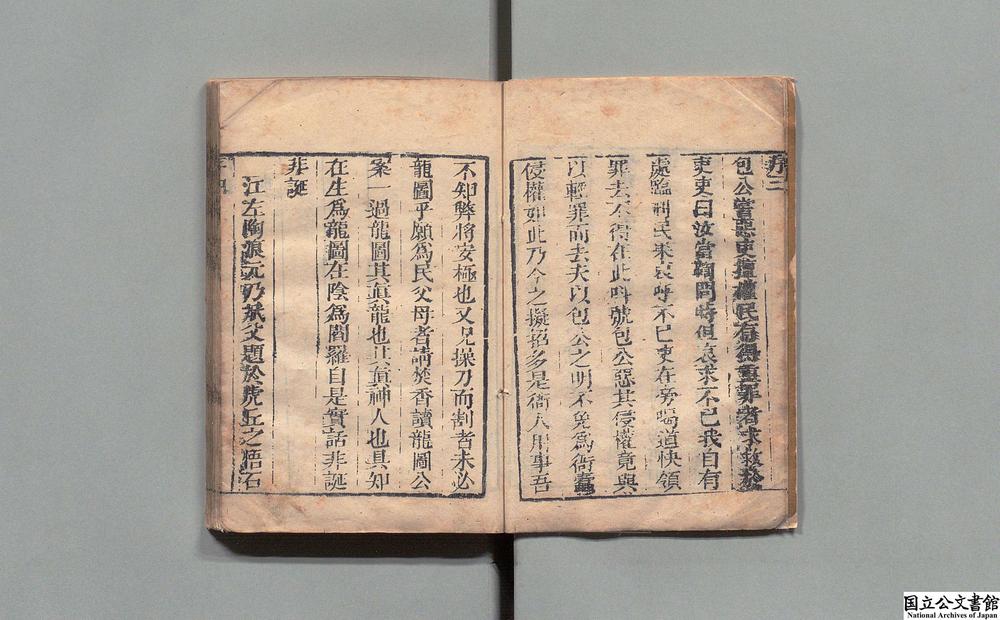 序三
包公嘗惡吏擅權民有得重罪者求救於
吏吏曰汝當鞫問時但哀求不已我自有
處臨刑民果哀呼不已吏在旁喝道快領
罪去不得在此呌號包公惡其侵權竟與
以輕罪而去夫以包公之明不免為衙蠹
侵權如此乃今之擬招多是衙人用事吾
不知弊將安極也又見操刀而割者未必
龍圖乎願為民父母者請焚香讀龍圖公
案一過龍圖其真龍也其真神人也具知
在生為龍圖在陰為閻羅自是實話非誕
非誕
江左陶浪元乃斌父題於虎丘之悟石
国立公文書館
National Archives of Japan